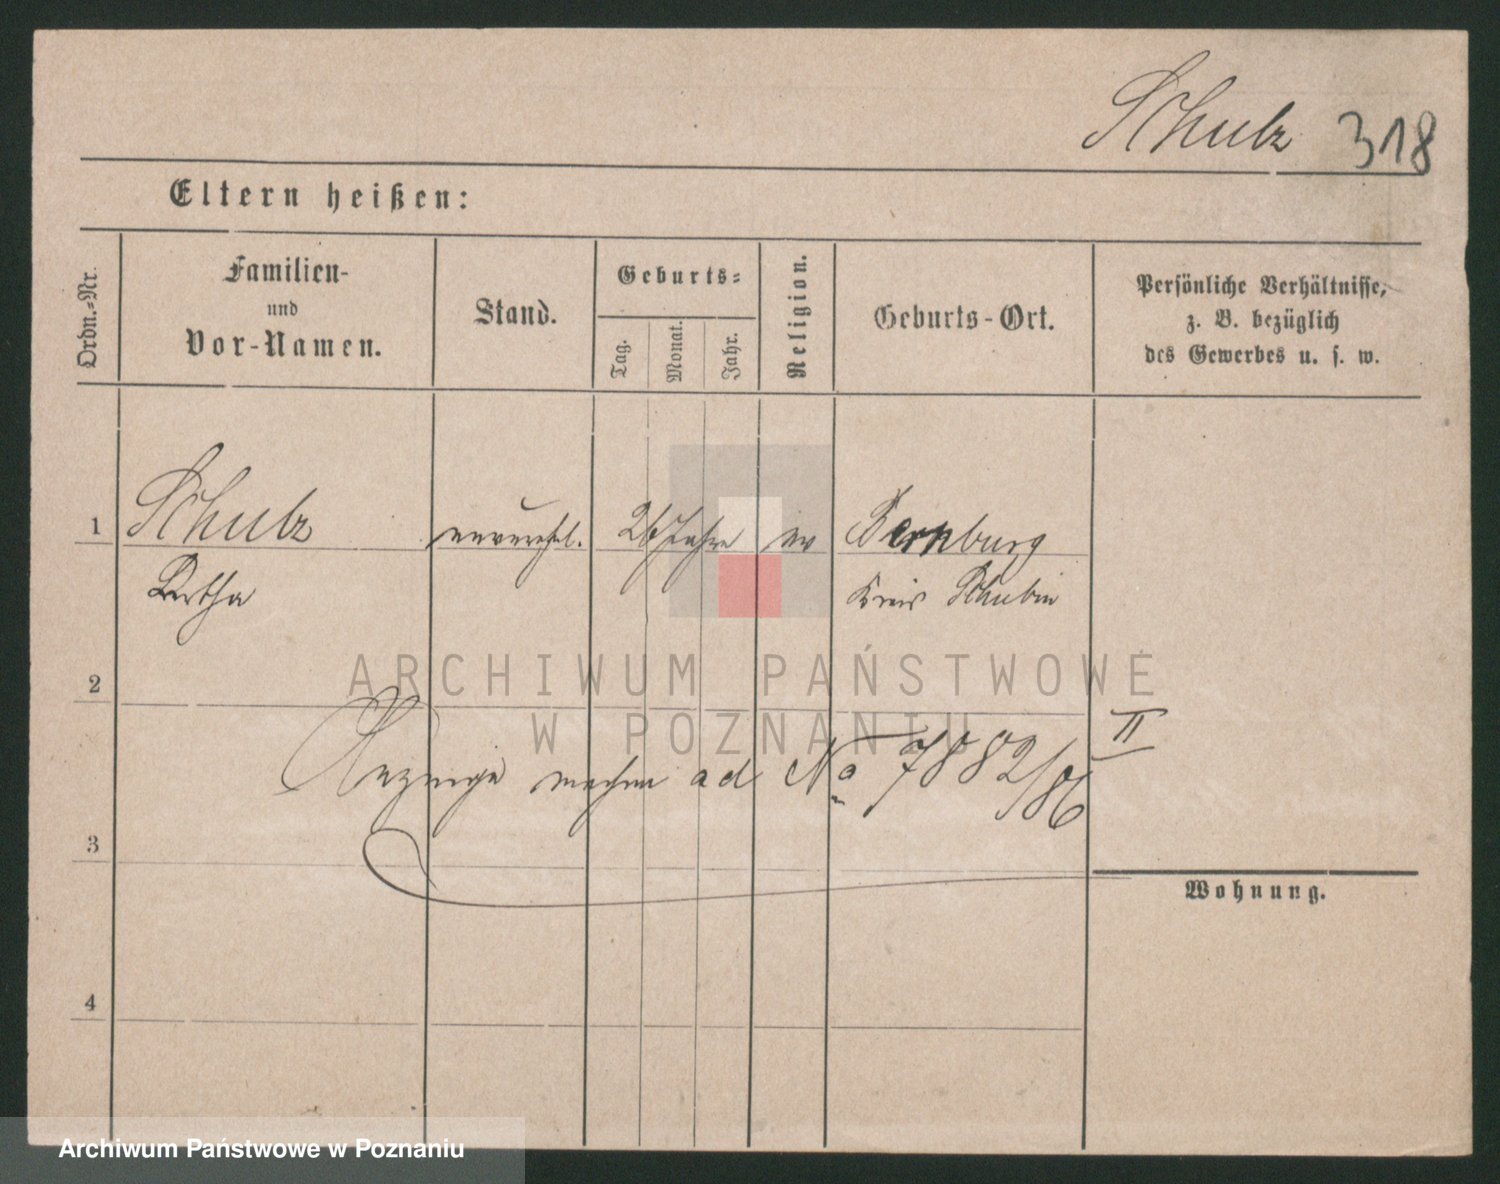 Schulz 318
Eltern heißen:
Ordn.-Nr.
Familien-
und
Vor-Namen.
Stand.
Geburts-
Tag.
Monat.
Jahr.
Religion.
Geburts-Ort.
Persönliche Verhältnisse,
z. B. bezüglich
des Gewerbes u. s. w.
1 Schulz unverehel. 26 Jahre ev Bernburg
Kreis Schubin
2
ARCHIWUM PAŃSTWOWE
W POZNANIU
II
Anzeige machen ad No 7882/86
3
Wohnung.
4
Archiwum Państwowe w Poznaniu